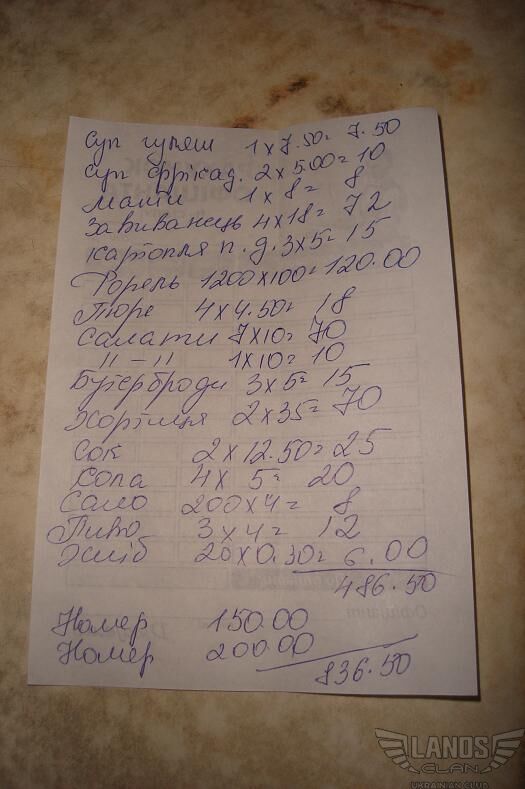 Суп гуляш 1 x 7.50 = 7.50
Суп фрікад. 2 x 5.00 = 10
Манти 1 x 8 = 8
Завиванець 4 x 18 = 72
Картопля п. д. 3 x 5 = 15
Форель 1200 x 100 = 120.00
Пюре 4 x 4.50 = 18
Салати 7 x 10 = 70
" – " 1 x 10 = 10
Бутерброди 3 x 5 = 15
Хортиця 2 x 35 = 70
Сок 2 x 12.50 = 25
Сопа 4 x 5 = 20
Сало 200 x 4 = 8
Пиво 3 x 4 = 12
Хліб 20 x 0.30 = 6.00
486.50
Номер 150.00
Номер 200.00
836.50
LANOS
CLAN
UKRAINIAN CLUB